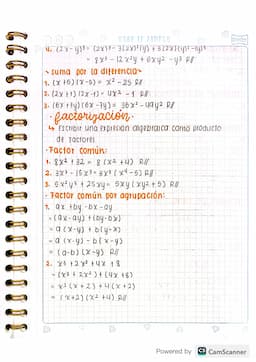 4. (2x-y)³ = (2x)³-3(2x)²(y)+3(2x)(y)²-(y)³
= 8x³-12x²y+6xy²-y³ R//
· Suma por la diferencia
1. (x+5)(x-5) = x²-25 R//
2. (2x+1)(2x-1) = 4x²-1 R//
3. (6x+7y)(6x-7y) = 36x²-49y² R//
· factorización·
↳ Escribir una expresión algebraica como producto
de factores.
· Factor común:
1. 8x²+32 = 8(x²+4) R//
3. 5x²y³+25xy = 5xy(xy²+5) R//
· Factor común por agrupación:
1. ax+by-bx-ay
= (ax-ay)+(by-bx)
= a(x-y)+b(y-x)
= a(x-y)-b(x-y)
= (a-b)(x-y) R//
2. x³+2x²+4x+8
= (x³+2x²)+(4x+8)
= x²(x+2)+4(x+2)
= (x+2)(x²+4) R//
Powered by CS CamScanner